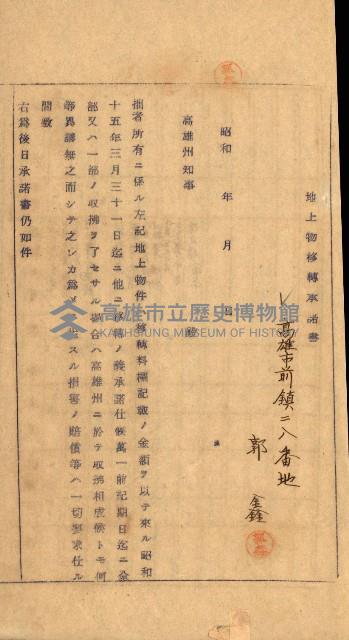 地上物移轉承諾書
高雄市前鎮二八番地
郭鑫
昭和 年 月 日
高雄州知事 殿
拙者所有ニ係ル左記地上物件 移轉料欄記載ノ金額ヲ以テ來ル昭和
十五年三月三十一日迄ニ他ニ移轉ノ義承諾仕候萬一前記期日迄ニ全
部又ハ一部ノ收拂ヲ了セサル場合ハ高雄州ニ於テ收拂相成候トモ何
等異議無之而シテ之レカ爲メ スル損害ノ賠償等ハ一切要求仕ル
間敷
右爲後日承諾書仍如件
高雄市立歷史博物館
KAOHSIUNG MUSEUM OF HISTORY